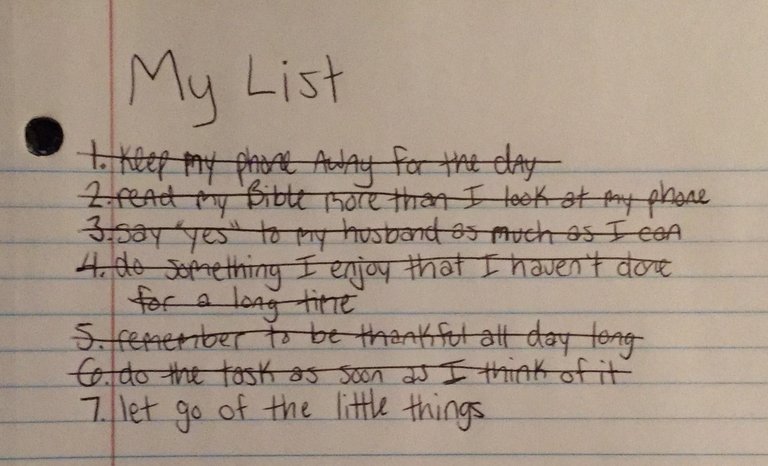 My List
1. Keep my phone Away for the day
2. read my Bible more than I look at my phone
3. say "yes" to my husband as much as I can
4. do something I enjoy that I haven't done
for a long time
5. remember to be thankful all day long
6. do the task as soon as I think of it
7. let go of the little things